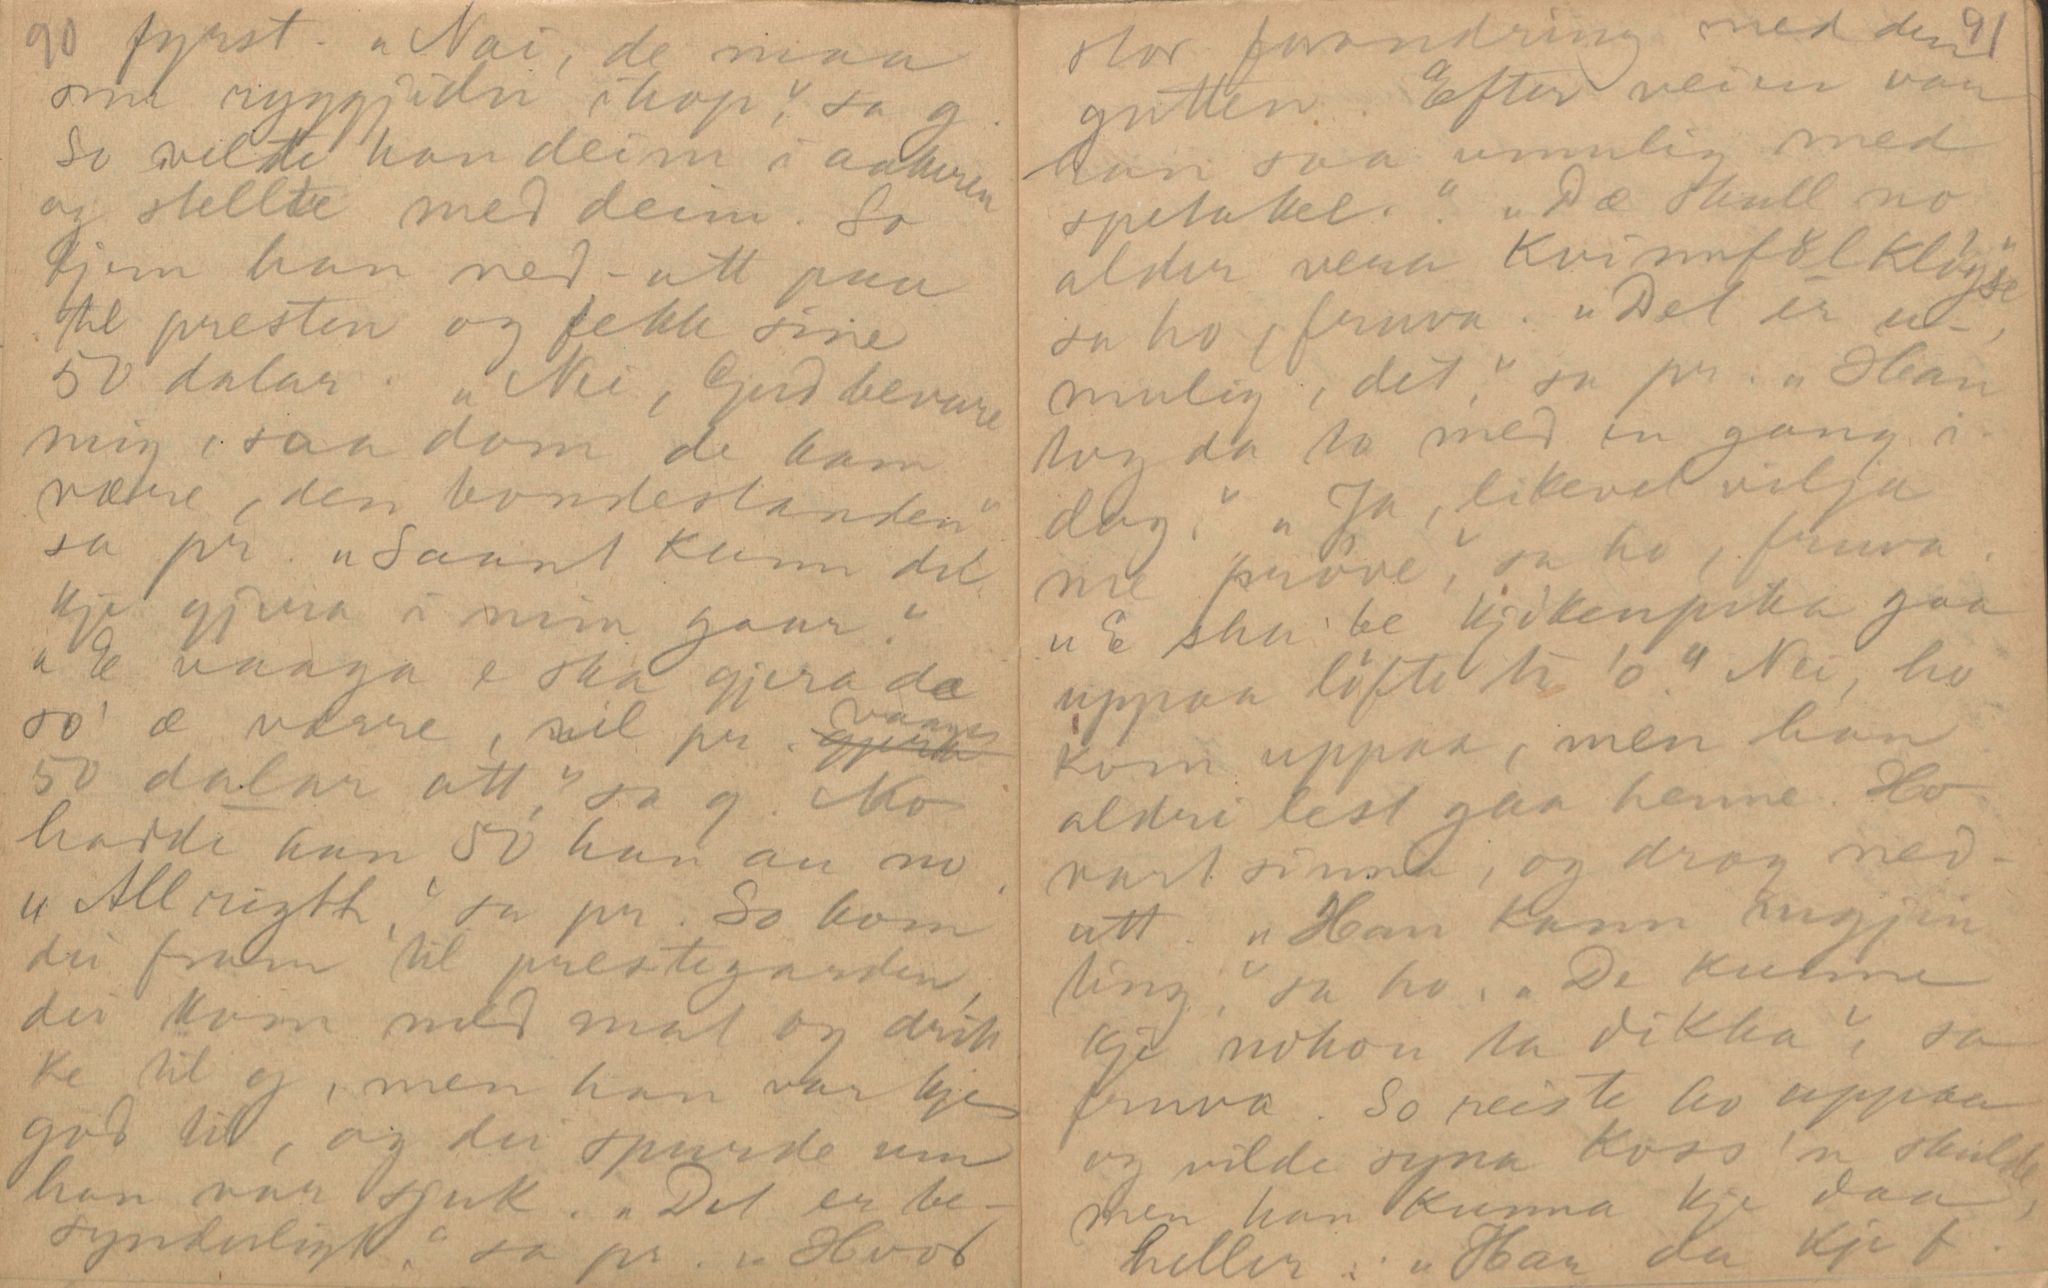 90
fyrst. „Nai, de maa
sme ryggjidn ihop," sa g.
So velte han deim i aakeren
og stellte med deim. So
kjem han ned-att paa
til presten og fekk sine
50 dalar. „Nei, Gud bevare
mig, saa dom de kam
være, den bondestanden"
sa pr. „Saant kunn dil
kje gjera i min gaar."
„E vaaga e ska gjera dæ
so' æ værre, vil pr. vaaga
50 dalar att," sa g. No
hadde han 50 han au no.
„All rigth," sa pr. So kom
dei fram til prestegarden,
dei kom med mat og drik
ke til g, men han var kje
god til, og dei spurde um
han var sjuk. „Det er be-
synderligt," sa pr. „Hvor
91
stor forandring med den
gutten. Efter veien var
han saa umulig med
spetakel." „Dæ skull no
alder vera kvinnfölkklöyse"
sa ho, fruva. „Det er u-
mulig, det," sa pr. „Han
tog da to med en gang i
dag." „Ja, likevel vilja
me pröve," sa ho, fruva.
„E ska be kjökenpika gaa
uppaa löfte te 'o." Nei, ho
kom uppaa, men han
aldri lest gaa henne. Ho
vart sinna, og drog ned-
att. „Han kann ingjin
ting," sa ho. „De kunne
kje nokon ta dikka", sa
fruva. So reiste ho uppaa
og vilde syna koss 'n skulde,
men han kunna kje daa
heller. „Han du kje f.